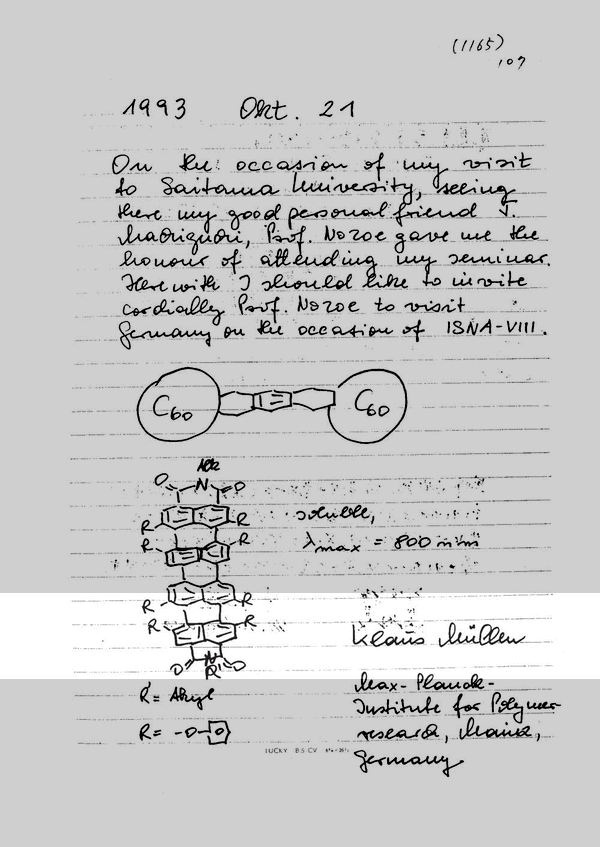 (1165)
107
1993 Okt. 21
On the occasion of my visit
to Saitama University, seeing
there my good personal friend J.
Prof. Nozoe gave me the
honour of attending my seminar.
Herewith I should like to invite
cordially Prof. Nozoe to visit
Germany on the occasion of ISNA-VIII.
C60 C60
O N O
R R
R R
soluble,
λmax = 800 nm
R R
R R
O N O
R'
Klaus Müllen
R' = Alkyl
R = -O-
Max-Planck-
Institute for Polymer-
research, Mainz,
Germany
LUCKY B5 CV